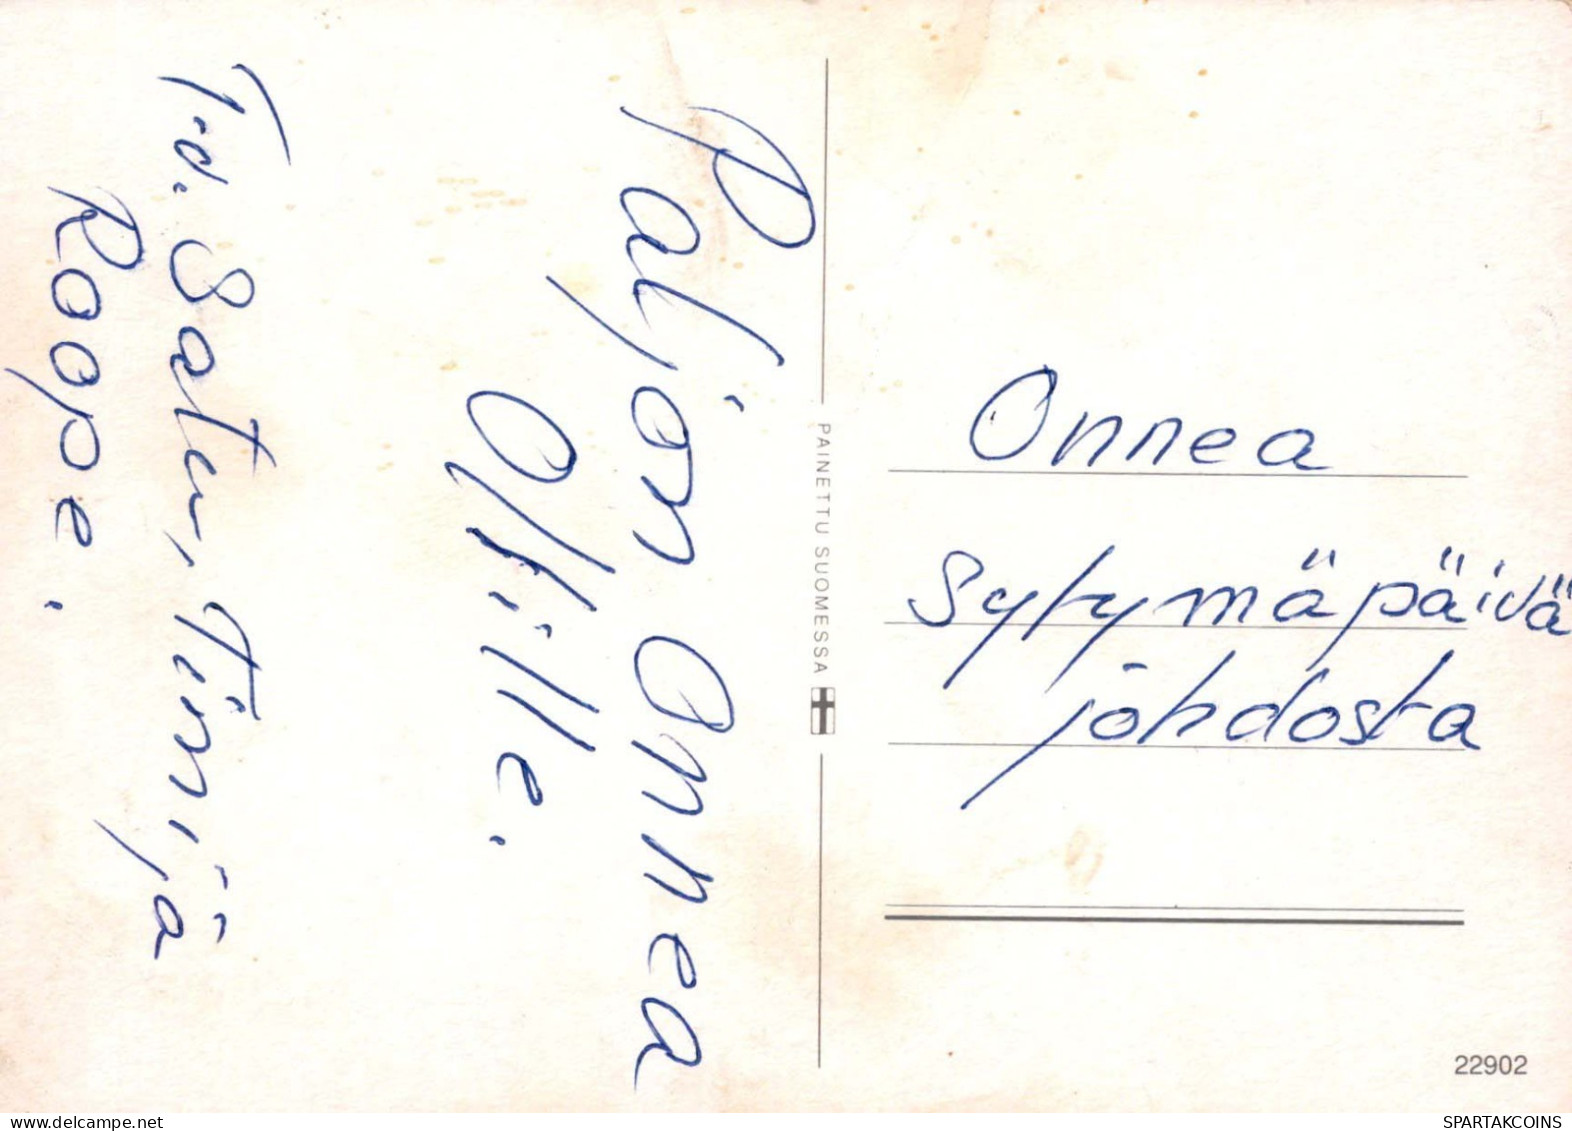 Paljon Onnea
Ollille.
T.d. Satu, Timi ja
Roope.
PAINETTU SUOMESSA
Onnea
Sytymäpäivä
johdosta
22902
SPARTAKCOINS